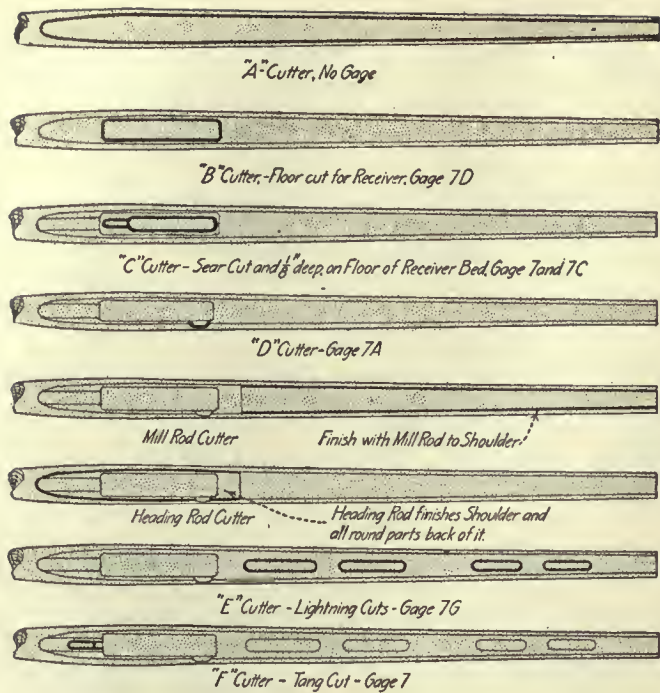 "A" Cutter, No Gage
"B" Cutter, - Floor cut for Receiver, Gage 7D
"C" Cutter - Sear Cut and 1/8" deep, on Floor of Receiver Bed, Gage 7 and 7C
"D" Cutter - Gage 7A
Mill Rod Cutter
Finish with Mill Rod to Shoulder
Heading Rod Cutter
Heading Rod finishes Shoulder and
all round parts back of it.
"E" Cutter - Lightning Cuts - Gage 7G
"F" Cutter - Tang Cut - Gage 7